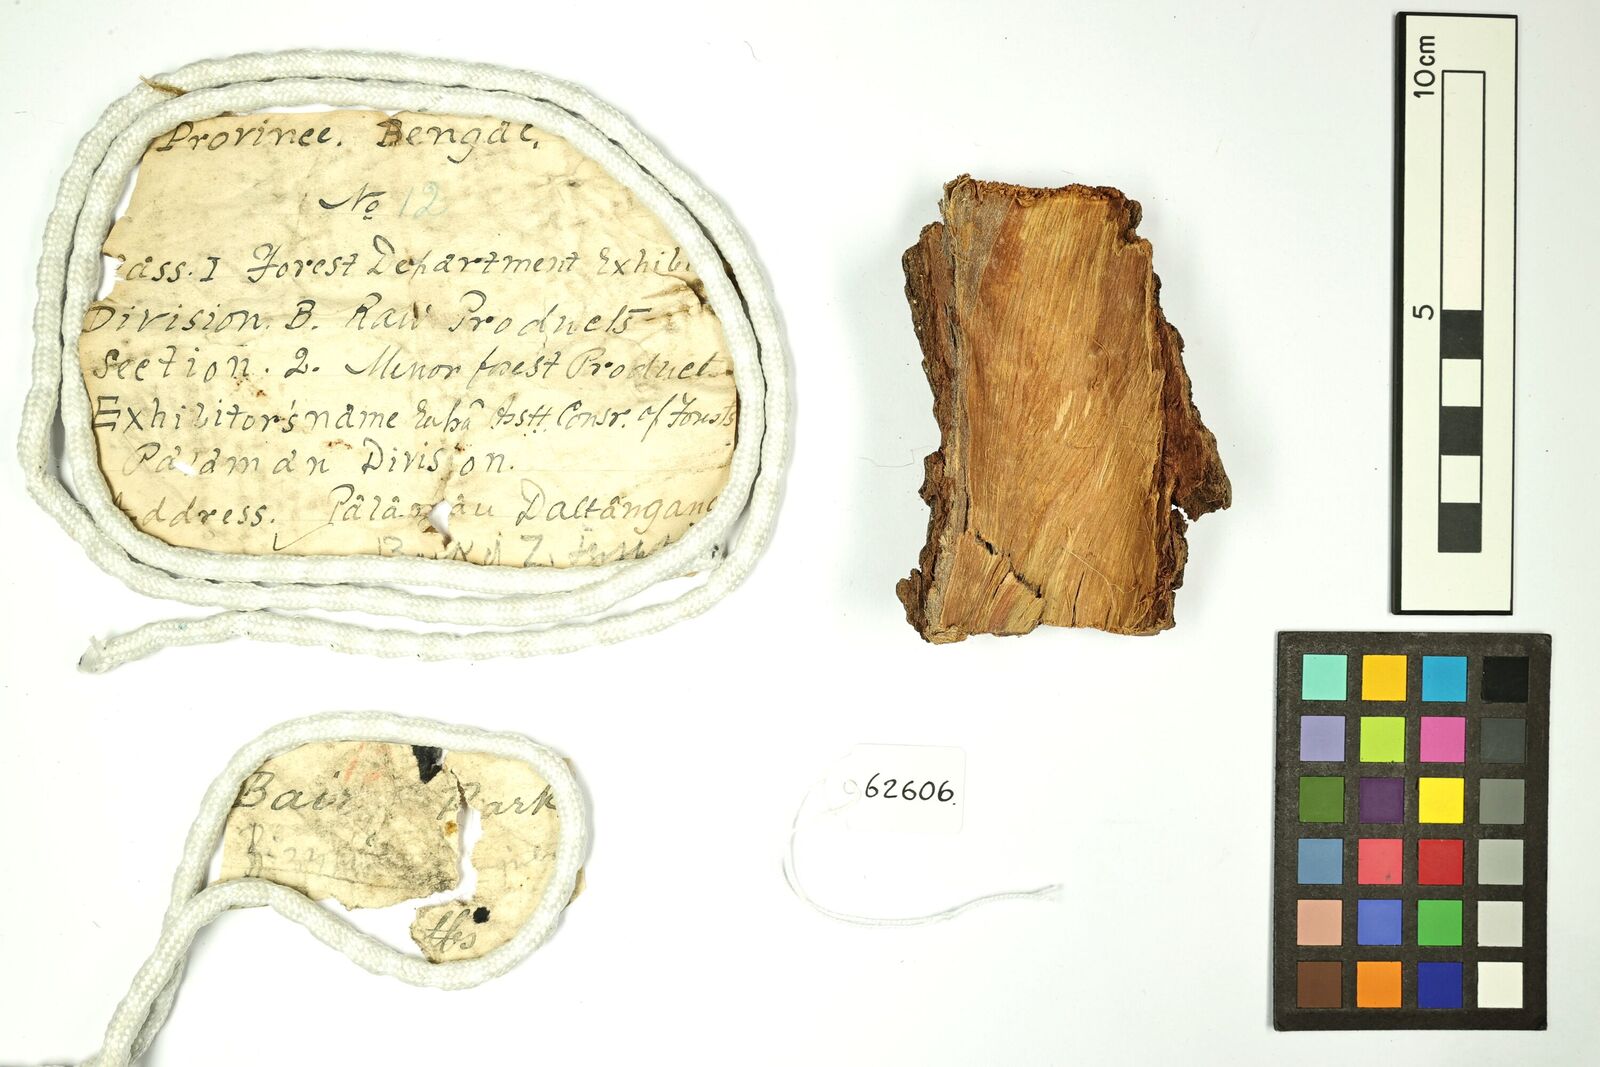 Province. Bengal.
No 12
ass. I Forest Department Exhibi
Division. B. Raw Products
Section. 2. Minor forest Product
Exhibitor's name Asst. Consr. of Forests
Palaman Division.
Address. Pâlâmâu Daltângang
Bair Bark
lbs
62606.
10cm
5